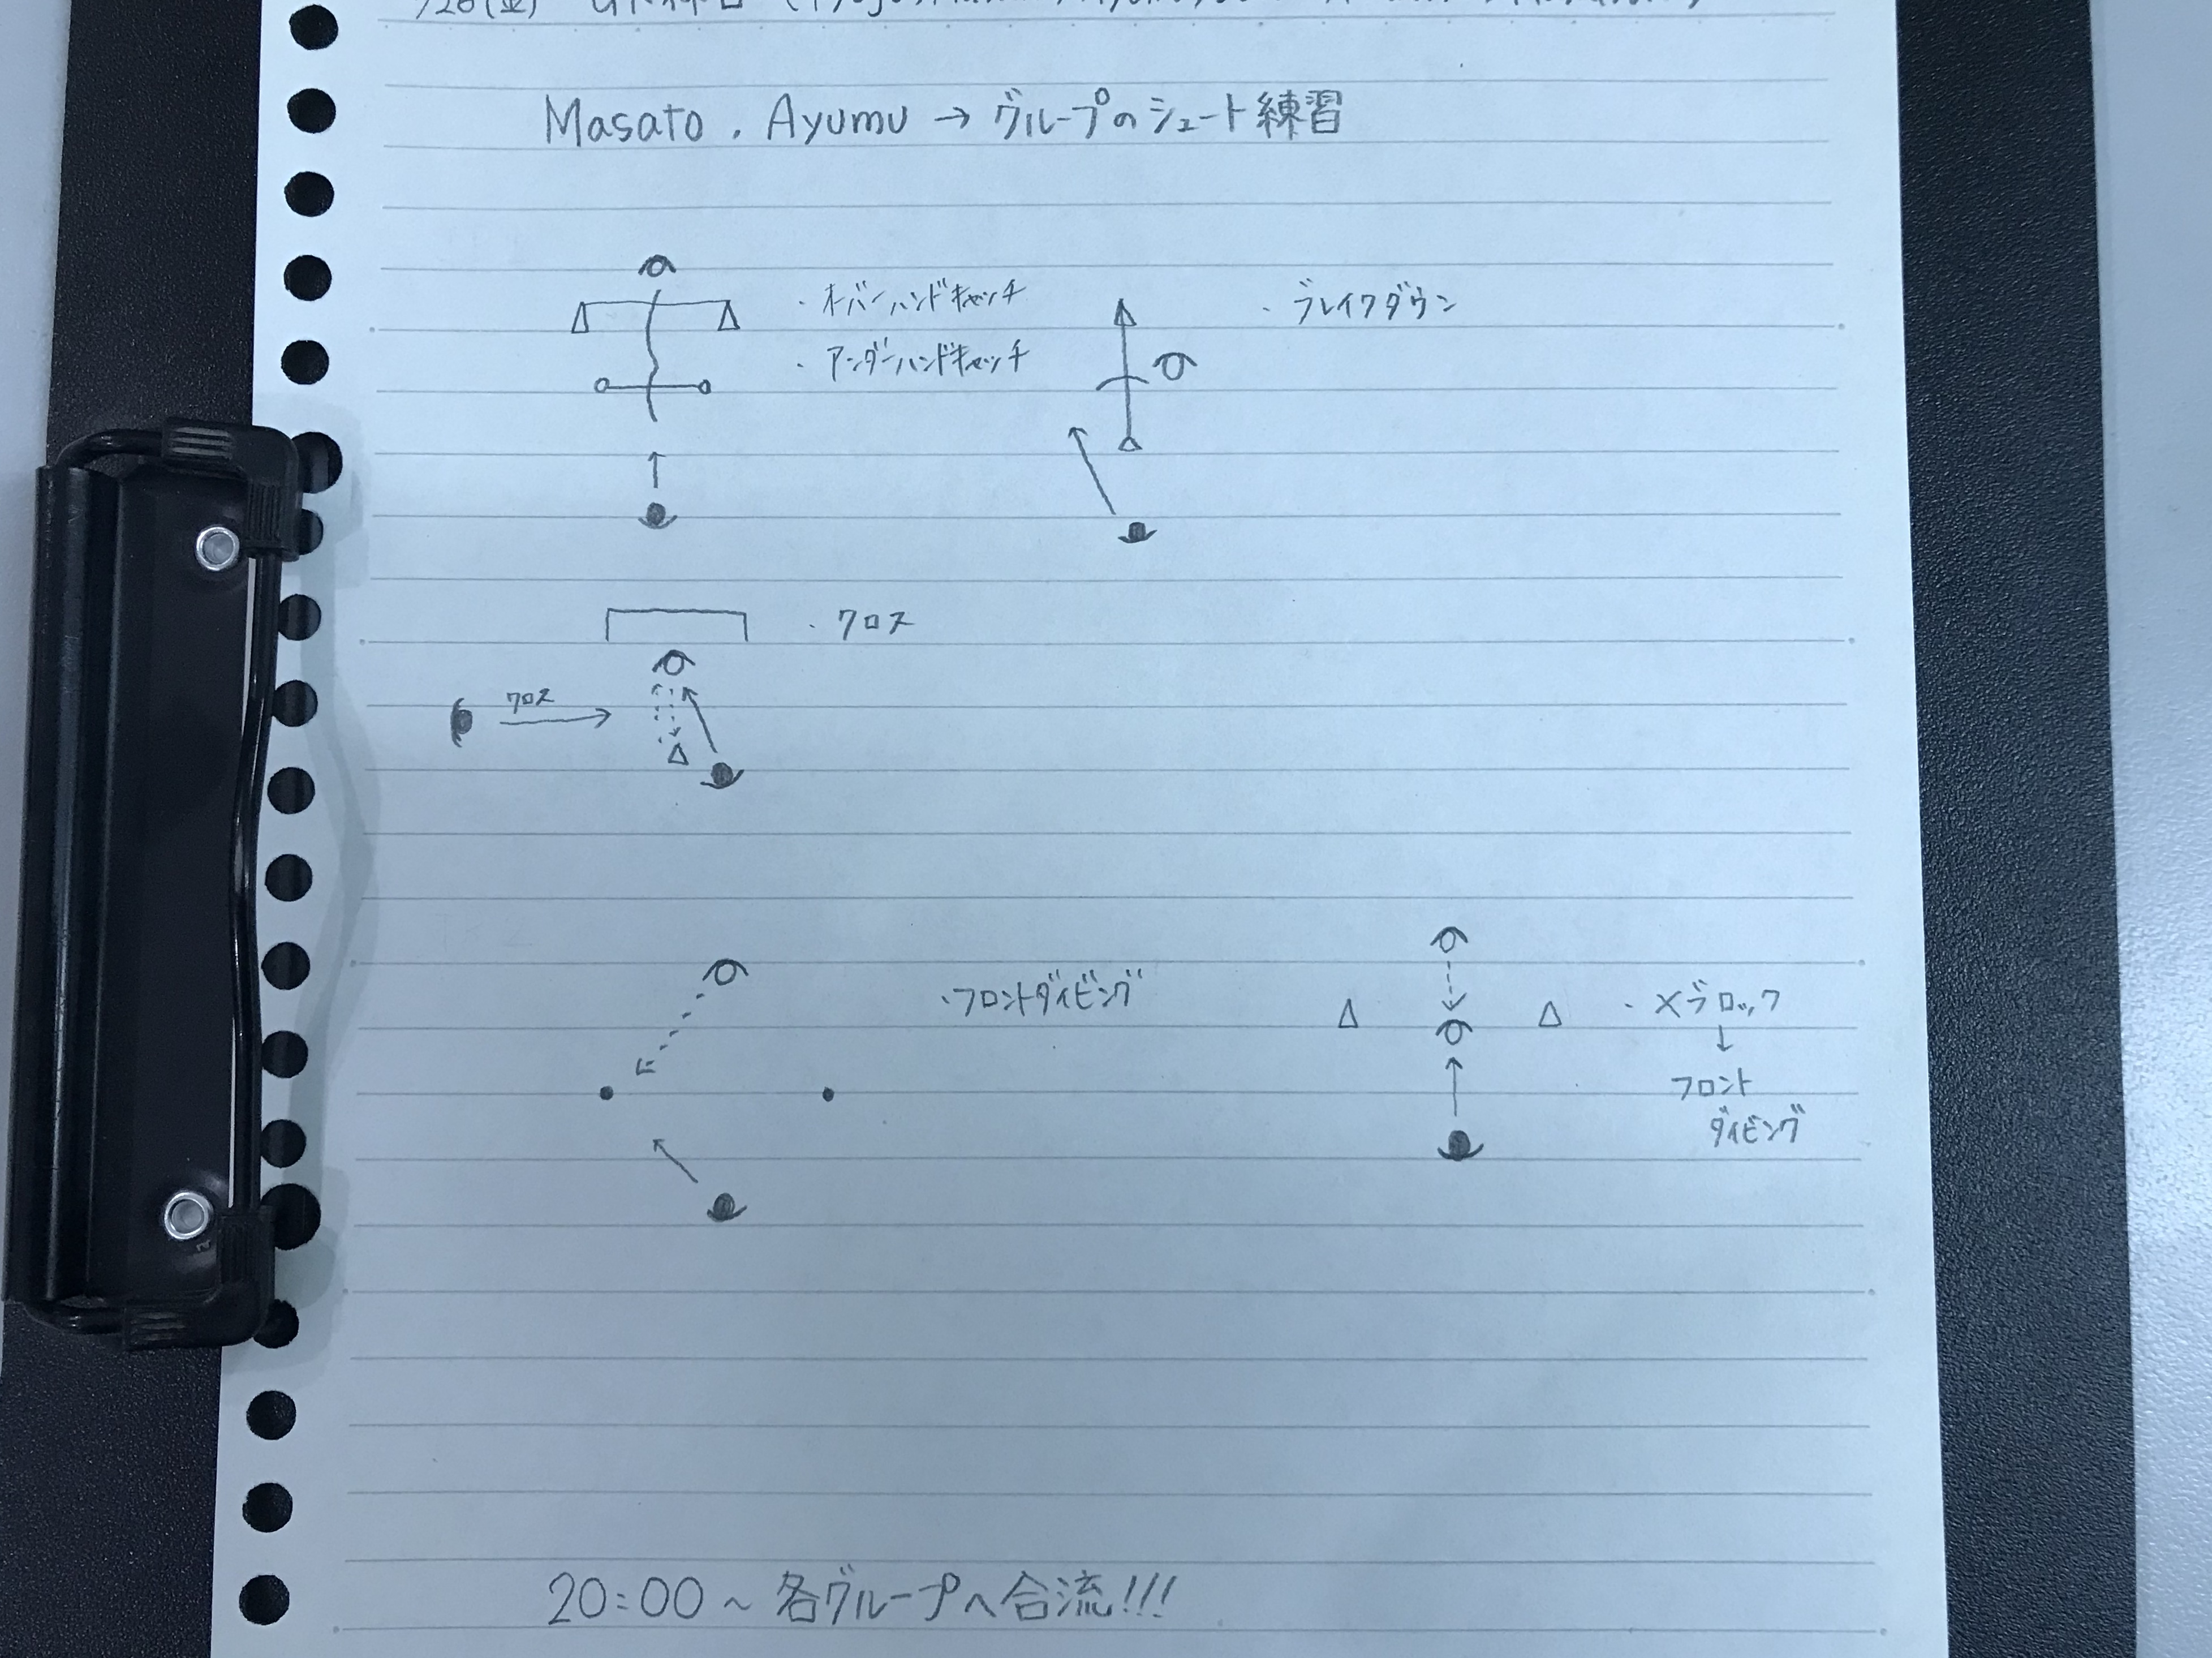 Masato, Ayumu → グループのシュート練習
・オーバーハンドキャッチ
・アンダーハンドキャッチ
・ブレイクダウン
・クロス
クロス
・フロントダイビング
・Xブロック
↓
フロント
ダイビング
20:00～各グループへ合流!!!